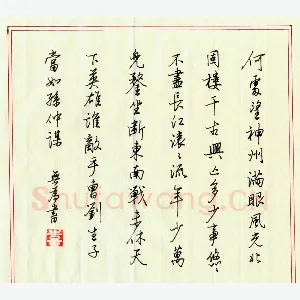 何處望神州滿眼風光北
固樓千古興亡多少事悠悠
不盡長江滾滾流年少萬
兜鍪坐斷東南戰未休天
下英雄誰敵手曹劉生子
當如孫仲謀
書
Shufawang.Cn